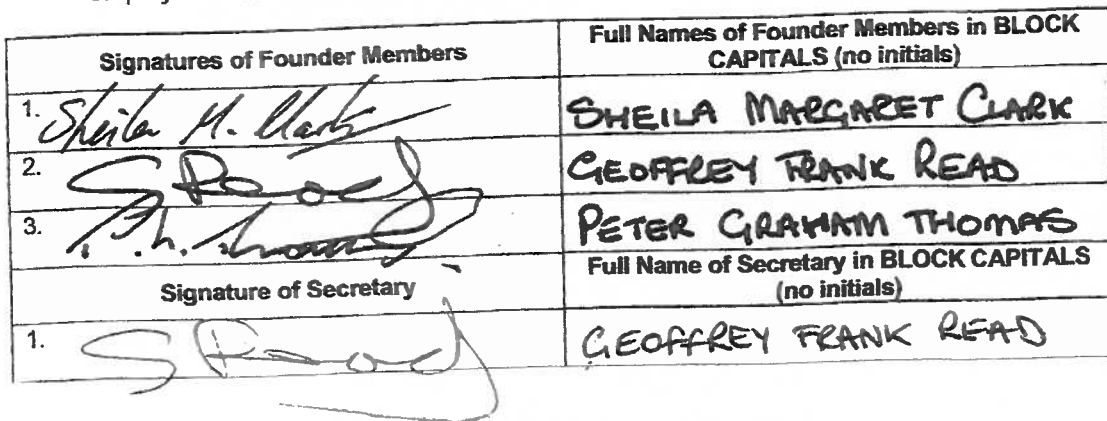 Signatures of Founder Members
Full Names of Founder Members in BLOCK
CAPITALS (no initials)
1. Sheila M. Clark
SHEILA MARGARET CLARK
2.
GEOFFREY FRANK READ
3.
PETER GRAHAM THOMAS
Signature of Secretary
Full Name of Secretary in BLOCK CAPITALS
(no initials)
1.
GEOFFREY FRANK READ